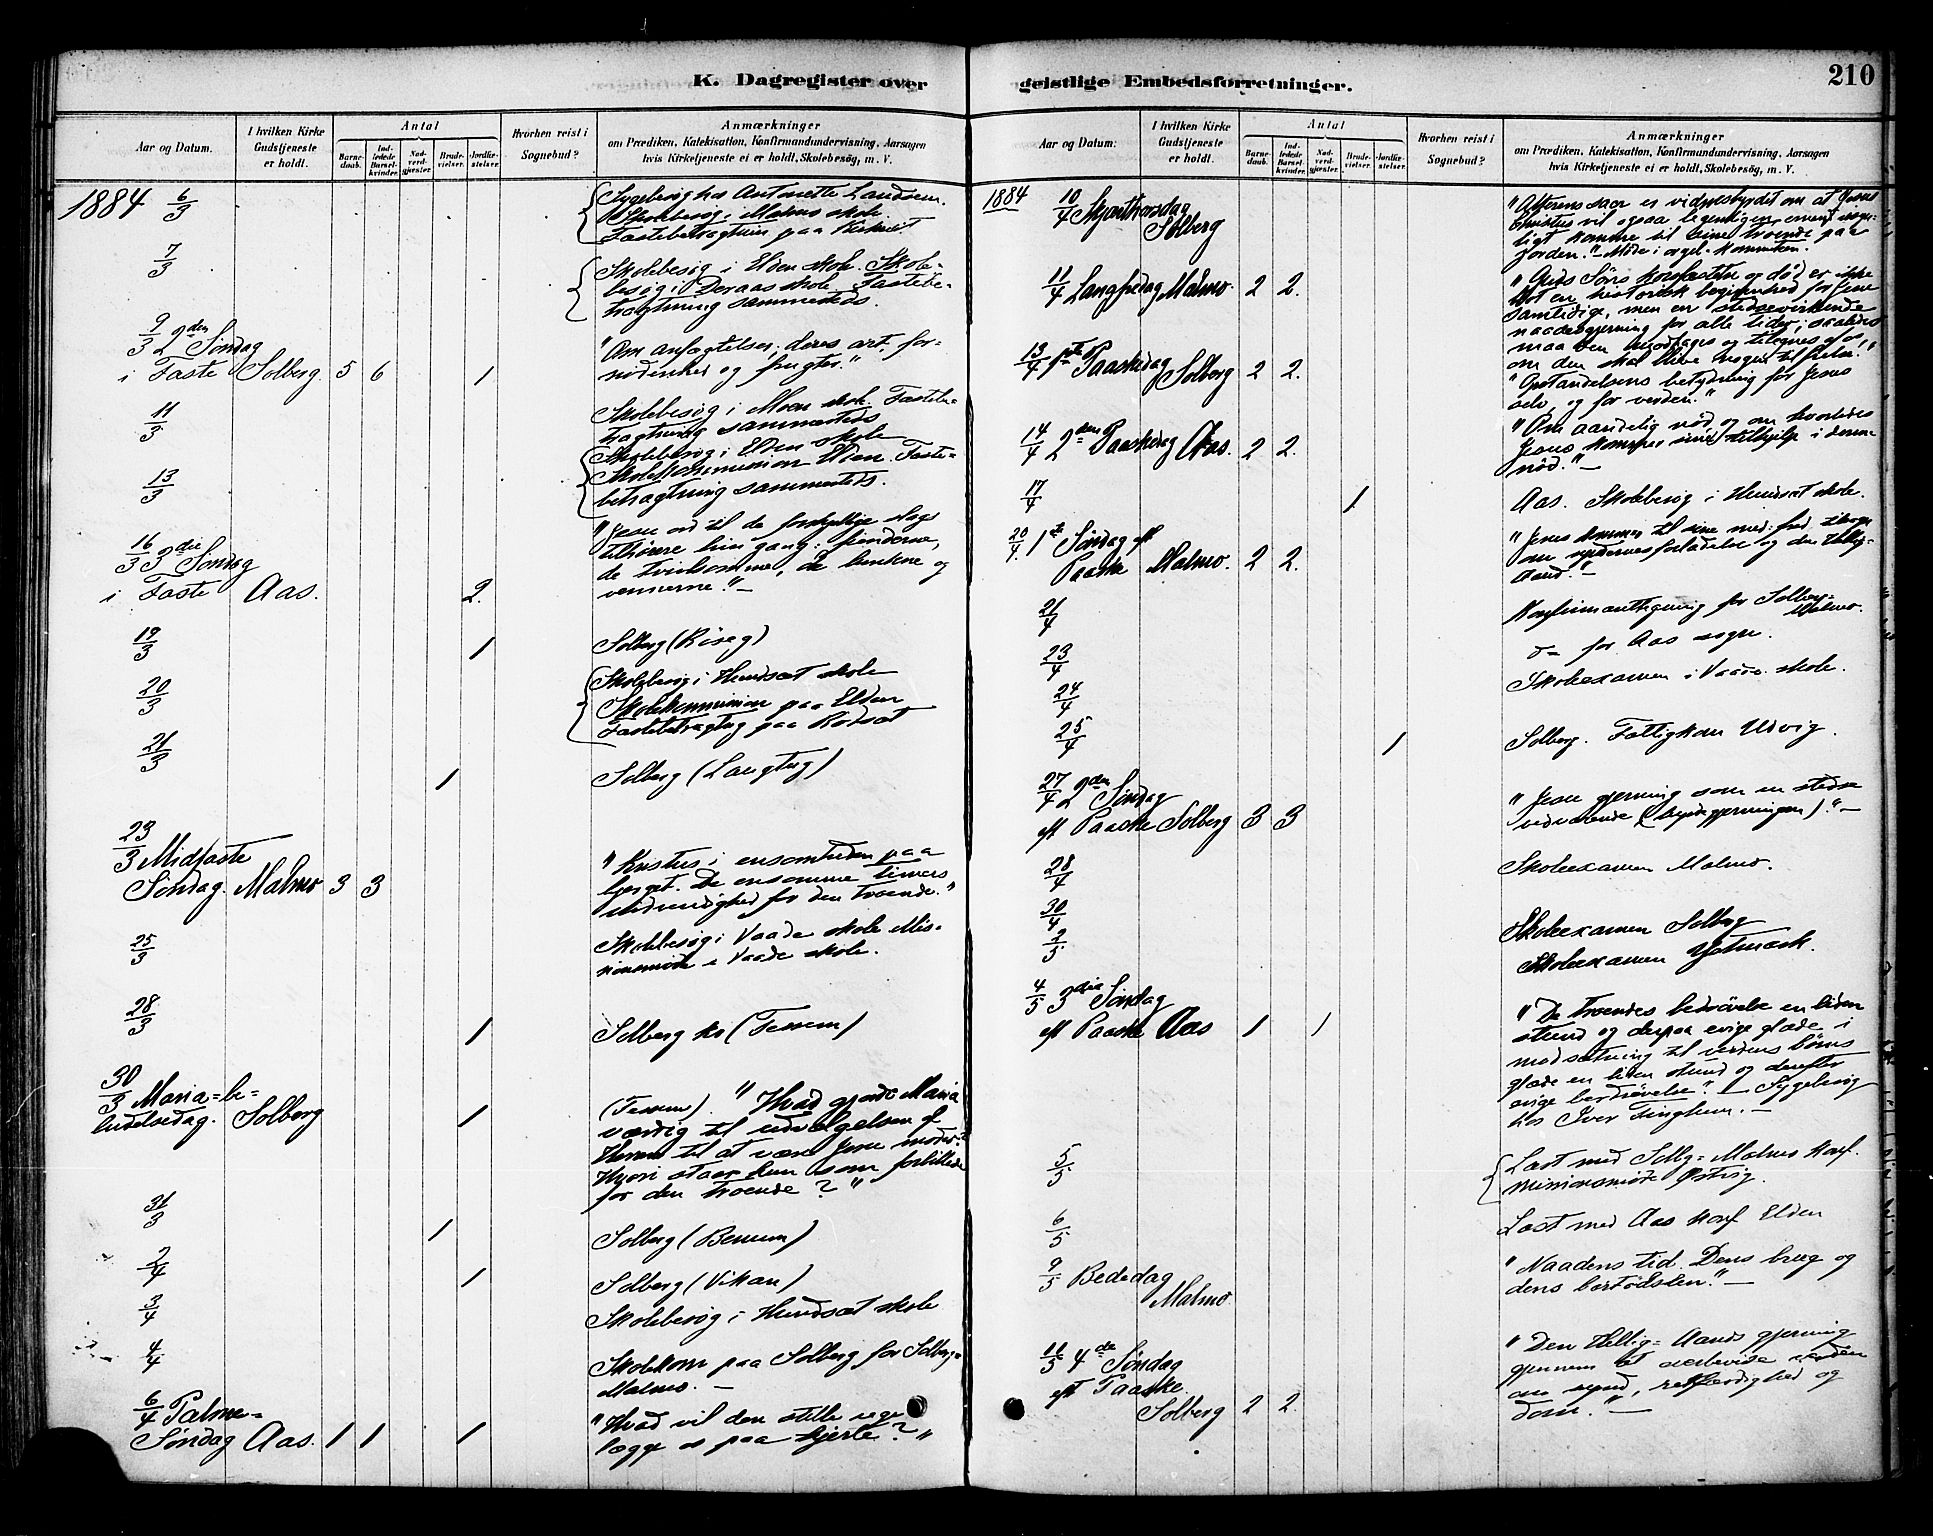 K. Dagregister over geistlige Embedsforretninger.
210
Aar og Datum.
I hvilken Kirke Gudstjeneste er holdt.
Antal
Barnedaab.
Indledede Barselkvinder.
Nadverdgjæster.
Brudevielser.
Jordfæstelser.
Hvorhen reist i Sognebud?
Anmærkninger
om Prædiken, Katekisation, Konfirmandundervisning, Aarsagen
hvis Kirketjeneste ei er holdt, Skolebesög, m. V.
1884 6/3 Sygebesög hos Antonette
Skolebesög i Malmo skole.
Fastebetragtning paa
7/3 Skolebesög i Elden skole. Skole-
besög i Deraas skole. Fastebe-
tragtning sammesteds.
9/3 2den Søndag
i Faste Solberg. 5 6 1
"Om anfægtelser, deres art, for-
nödenhed og frugter."
11/3 Skolebesög i Moen skole. Fastebe-
tragtning sammesteds
13/3 Skolebesög i Elden skole
Skolekommission Elden. Faste-
betragtning sammesteds.
16/3 3die Søndag
i Faste Aas. 2.
"Jesu ord til de forskjellige slags
tilhörere hin gang: fienderne,
de tvivlsomme, de bundne og
vennerne." —
19/3 1 Solberg (Röseg)
20/3 Skolebesög i Hundsæt skole
Skolekommission paa Elden
Fastebetragtng paa Rodsæt
21/3 1 Solberg (Langteig)
23/3 Midfaste
Søndag. Malmo 3 3
"Kristus i ensomheden paa
bjerget. De ensomme timers
nödvendighed for den troende."
25/3 Skolebesög i Vaade skole Mis-
sionsmöde i Vaade skole.
28/3 1 Solberg k. (Tessem)
30/3 Maria-be-
budelsedag. Solberg 1
(Tessem). "Hvad gjorde Maria
værdig til udvælgelsen af
Herren til at være Jesu moder?
Hvori staar hun som forbillede
for den troende?"
31/3 1 Solberg (Benum)
2/4 1 Solberg (Vikan)
3/4 Skolebesög i Hundsæt skole
4/4 Skolekom paa Solberg for Solberg-
Malmo. —
6/4 Palme-
Søndag Aas. 1 1 1
"Hvad vil den stille uge
lægge os paa hjerte?"
Aar og Datum.
I hvilken Kirke Gudstjeneste er holdt.
Antal
Barnedaab.
Indledede Barselkvinder.
Nadverdgjæster.
Brudevielser.
Jordfæstelser.
Hvorhen reist i Sognebud?
Anmærkninger
om Prædiken, Katekisation, Konfirmandundervisning, Aarsagen
hvis Kirketjeneste ei er holdt, Skolebesög, m. V.
1884 10/4 Skjærthorsdag
Solberg
"Alterens saar er vidnesbyrdet om at Jesus
Christus vil ogsaa legemligen, ment
ligt komme til sine troende paa
jorden." Möde i orgel-kommiteen.
11/4 Langfredag Malmo. 2 2.
"Guds Söns korsfæstelse og död er ikke
blot en historisk begivenhed for Jesu
samtidige, men en stedsevirkende
naadesgjerning for alle tider; saaledes
maa den modtages og tilegnes af os,
om den skal blive nogen til frelse."
13/4 1ste Paaskedag Solberg 2 2.
"Opstandelsens betydning for Jesus
selv, og for verden."
14/4 2den Paaskedag Aas. 2 2.
"Om aandelig nöd, og om hvorledes
Jesus kommer sine tilhjelp i denne
nöd." —
17/4 1 Aas. Skolebesög i Hundsæt skole.
20/4 1ste Søndag eft
Paaske Malmo. 2 2.
"Jesus kommer til sine med: fred,
om syndernes forladelse og den Hellig-
Aand." —
21/4 Konfirmantlæsning for Solberg-
Malmo.
23/4 do for Aas sogn.
24/4 Skoleexamen i Vaade skole.
25/4 1 Solberg. Fattigkom Utvig.
27/4 2den Søndag
eft Paaske Solberg 3 3
"Jesu gjerning som en stedse
vedvarende (hyrdegjerningen)." —
28/4 Skoleexamen Malmo.
30/4 Skoleexamen Solberg
2/5 Skoleexamen
4/5 3die Søndag
eft Paaske Aas 1 1
"De troendes bedrövelse en liden
stund og derpaa evige glæde i
modsætning til verdens börns
glæde en liden stund og derefter
evige bedrövelse." — Sygebesög
hos Iver Tinghaun. —
5/5 Læst med Solbg-Malmo konf.
Missionsmöde
6/5 Læst med Aas konf Elden
9/5 Bededag
Malmo
"Naadens tid. Dens brug og
dens bortödslen." —
11/5 4de Søndag
eft Paaske.
Solberg 2 2.
"Den Hellig-Aands gjerning
gjennem at overbevise verden
om synd, retfærdighed og
dom." —